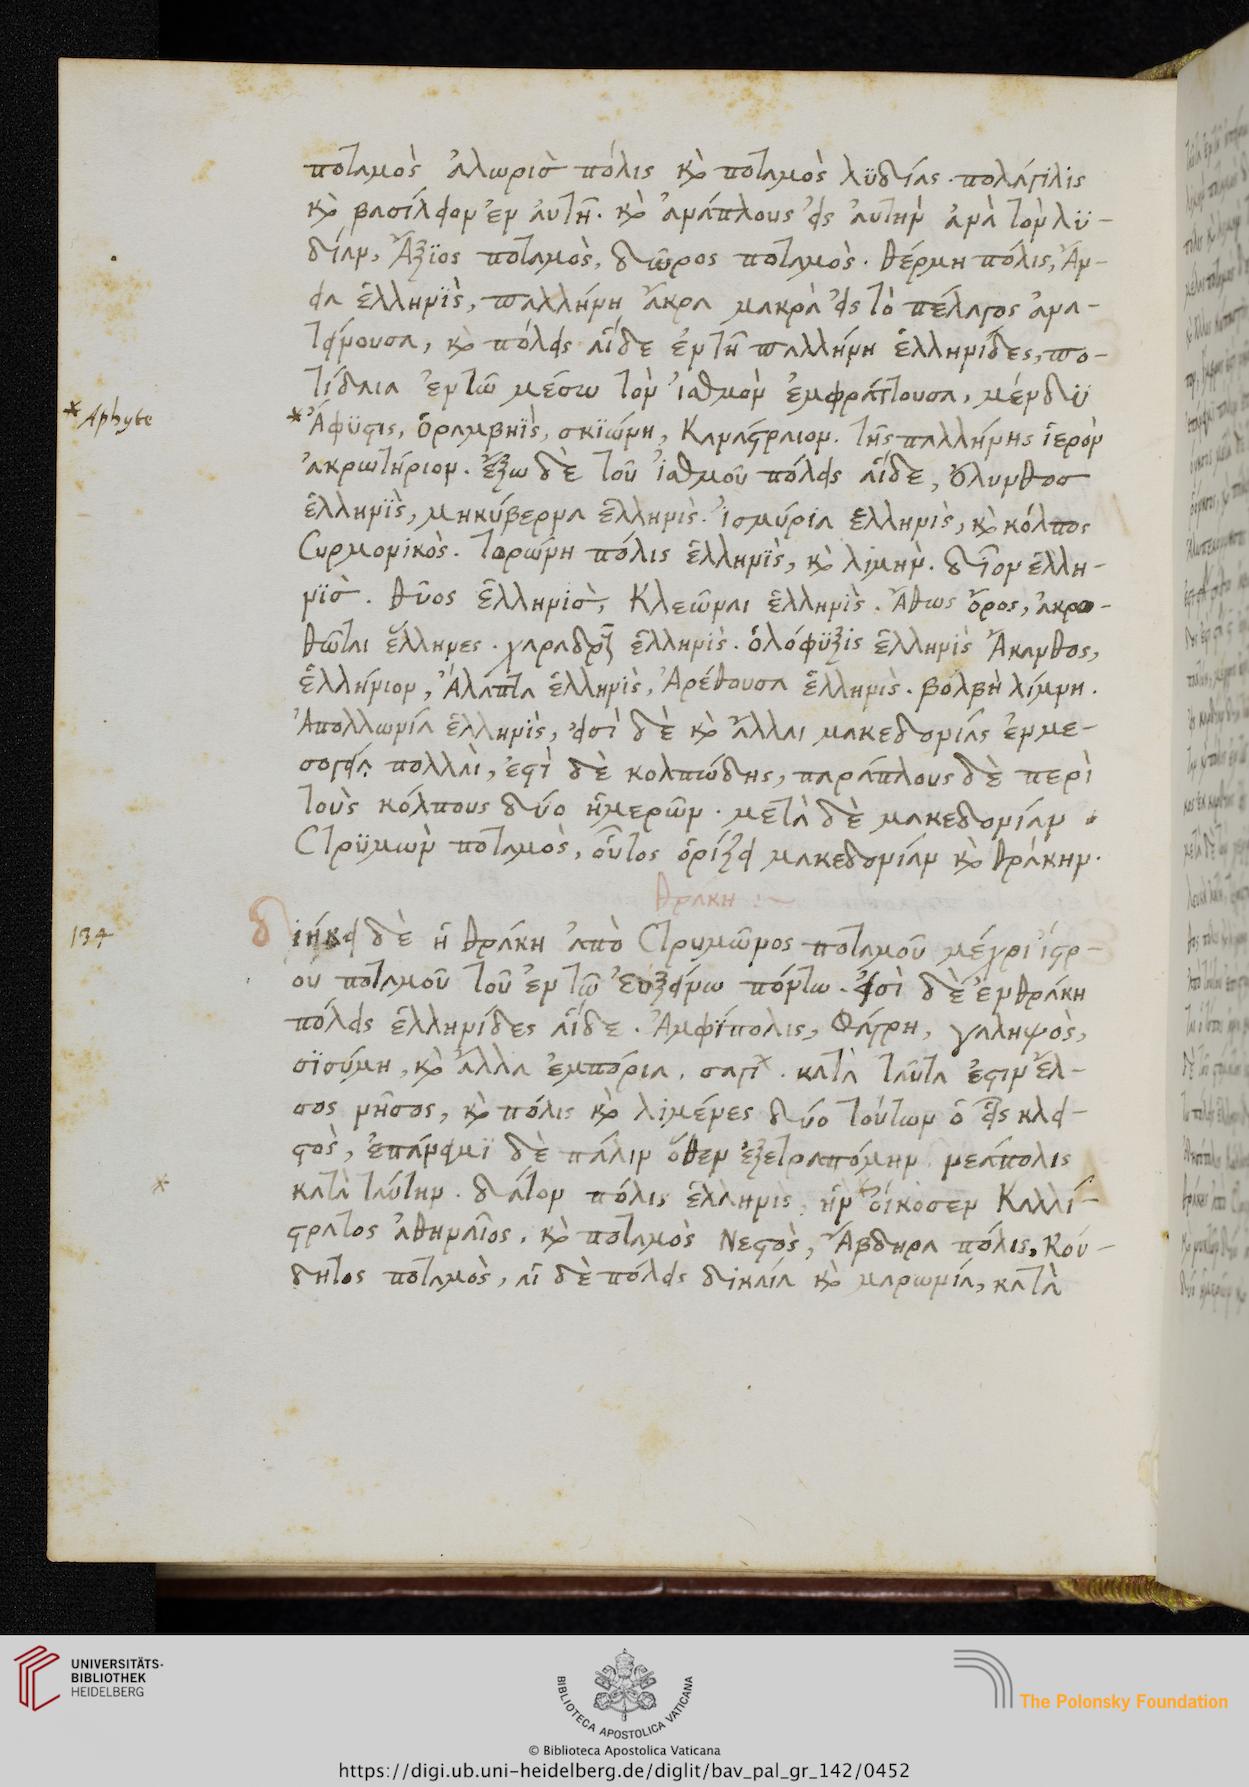 ποταμὸς ἀλωρισ πόλις καὶ ποταμὸς λϋδίας. πολάγιλις
καὶ βασίλειον ἐν αὐτῆ. καὶ ἀνάπλους εἰς αὐτὴν ἀνὰ τὸν λϋ-
δίαν, Ἄξϊος ποταμὸς, δῶρος ποταμὸς. θέρμη πόλις, Αἴν-
εια ἑλληνῒς, παλλήνη ἄκρα μακρὰ εἰς τὸ πέλαγος ἀνα-
τείνουσα, καὶ πόλεις αἵδε ἐν τῆ παλλήνη ἑλληνίδες, πο-
τίδαια ἐν τῶ μέσω τὸν ἰσθμὸν ἐμφράττουσα, μένδϋ
* Aphyte
*Ἀφϋστις, θραμβηῒς, σκϊώνη, Καναστραιον. τῆς παλλήνης ἱερὸν
ἀκρωτήριον. ἔξω δὲ τοῦ ἰσθμοῦ πόλεις αἵδε, ὄλυνθοσ
ἑλληνῒς, μηκύβερνα ἑλληνὶς. ἰσμύρια ἑλληνὶς, καὶ κόλπος
Συρμονικὸς. τορώνη πόλις ἑλληνῒς, καὶ λιμὴν. δῖον ἑλλη-
νῒσ. θῦος ἑλληνὶσ, Κλεῶναι ἑλληνὶς. Ἄθως ὄρος, ἀκρο-
θῶται ἕλληνες. χαραδρίαι ἑλληνὶς. ὁλόφϋξις ἑλληνὶς Ἄκανθος,
ἑλλήνιον, Ἀλάπτα ἑλληνὶς, Ἀρέθουσα ἑλληνὶς. βόλβη λίμνη.
Ἀπολλωνία ἑλληνὶς, εἰσὶ δὲ καὶ ἄλλαι μακεδονίας ἐν με-
σογεία πολλαὶ, ἐστὶ δὲ κολπώδης, παράπλους δὲ περὶ
τοὺς κόλπους δύο ἡμερῶν. μετὰ δὲ μακεδονίαν
Στρϋμὼν ποταμὸς, οὗτος ὁρίζει μακεδονίαν καὶ θράκην.
θρακη :~
134
διήκει δὲ ἡ θράκη ἀπὸ Στρυμῶνος ποταμοῦ μέχρι ἴστρ-
ου ποταμοῦ τοῦ ἐν τῶ Εὐξείνω πόντω. εἰσὶ δὲ ἐν θράκη
πόλεις ἑλληνίδες αἵδε. Ἀμφίπολις, Φάγρη, γαληψὸς,
σϊσύμη, καὶ ἄλλα ἐμπόρια. σαγι. κατὰ ταῦτα ἐστιν ἔλ-
σος νῆσος, καὶ πόλις καὶ λιμένες δύο τούτων ὁ εἷς κλει-
στὸς, ἐπάνειμϊ δὲ πάλιν ὅθεν ἐξετραπόμην. νεάπολις
*
κατὰ ταύτην. δάτον πόλις ἑλληνις, ἣν οἴκόσεν Καλλί-
στρατος ἀθηναῖος, καὶ ποταμὸς Νεστὸς, Ἄβδηρα πόλις, Κού-
δητος ποταμὸς, αἱ δὲ πόλεις δικαία καὶ μαρωνία, κατὰ
UNIVERSITÄTS-
BIBLIOTHEK
HEIDELBERG
BIBLIOTECA APOSTOLICA VATICANA
The Polonsky Foundation
© Biblioteca Apostolica Vaticana
https://digi.ub.uni-heidelberg.de/diglit/bav_pal_gr_142/0452